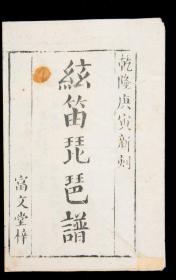 乾隆庚寅新刻
絃笛琵琶譜
富文堂梓